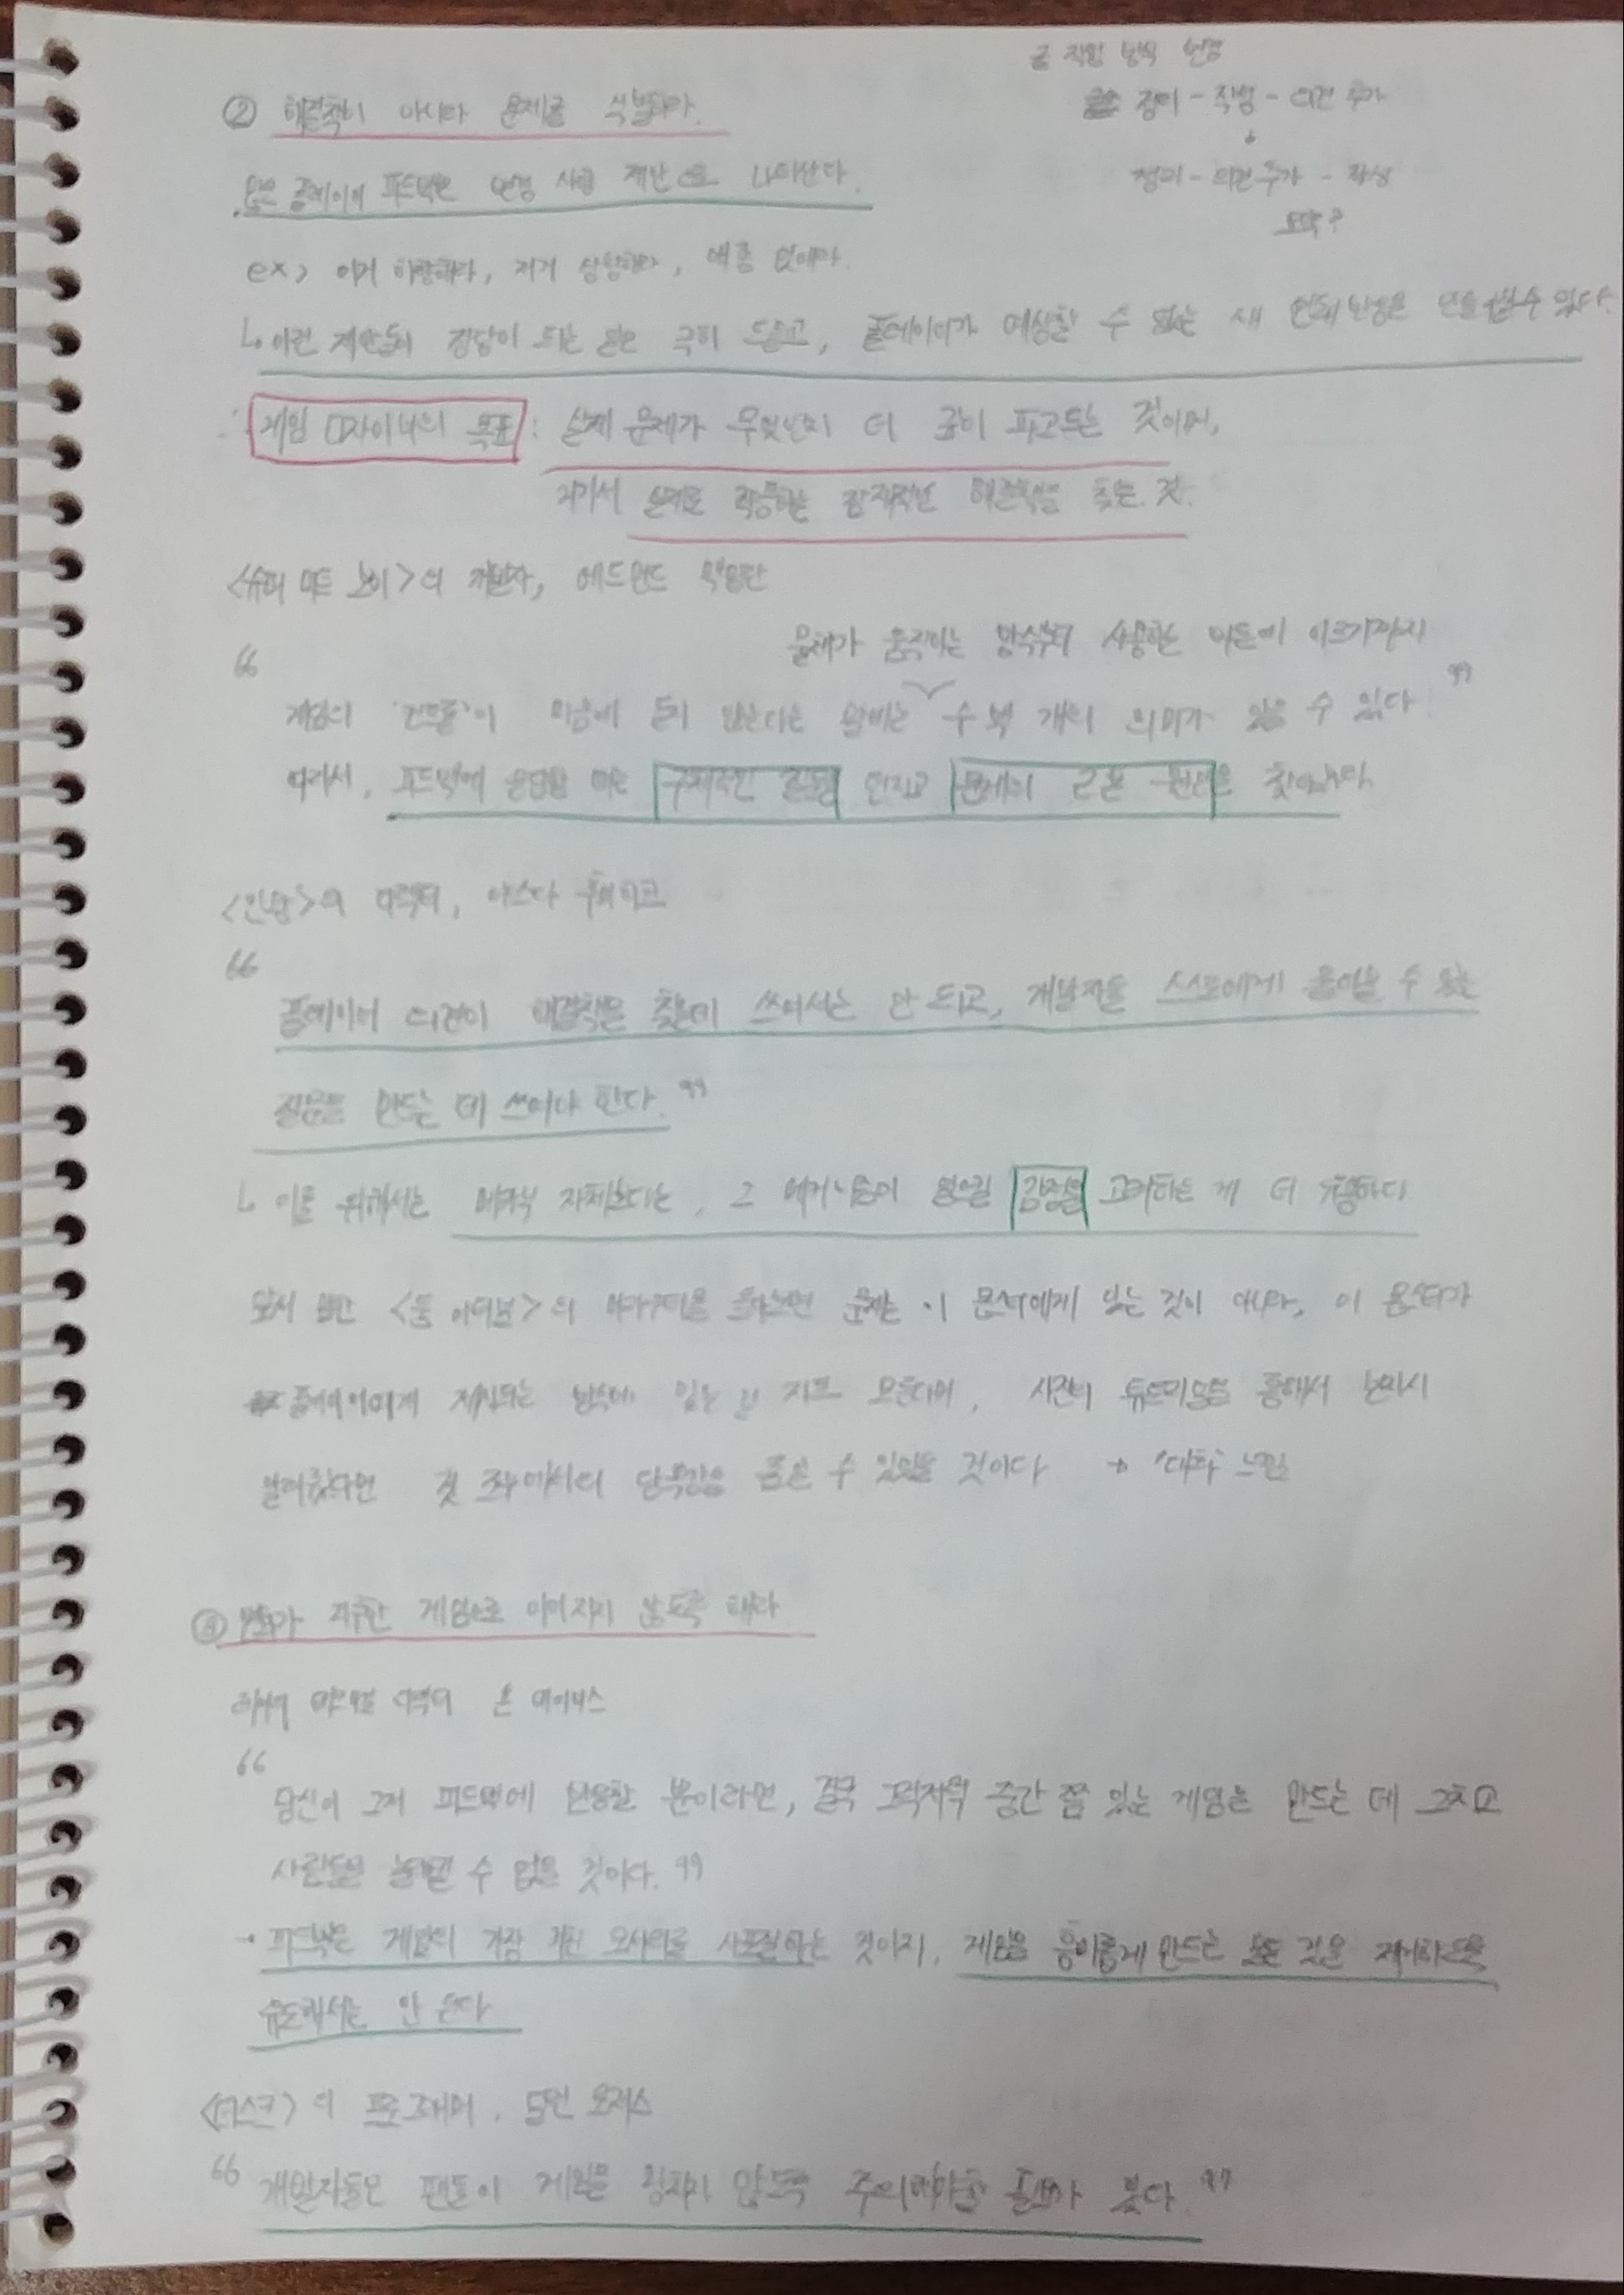 글 작업 방식 변경
정리 - 작성 - 의견 추가
정리 - 의견 추가 - 작성
② 해결책이 아니라 문제를 식별하라.
많은 플레이어 피드백은 변경 사항 제안으로 나타난다.
ex> 이거 하향해라, 저거 상향해라, 얘좀 없애라.
↳ 이런 제안들이 정답이 되는 일은 극히 드물고, 플레이어가 예상할 수 없는 새 연쇄 반응을 만들 수 있다.
∴ 게임 디자이너의 목표 : 실제 문제가 무엇인지 더 깊이 파고드는 것이며,
거기서 실제로 작동하는 잠재적인 해결책을 찾는 것.
<슈퍼 미트 보이>의 개발자, 에드먼드 맥밀란
물체가 움직이는 방식부터 사용하는 버튼에 이르기까지
“ 게임의 '컨트롤'이 마음에 들지 않는다는 말에는 수백 개의 의미가 있을 수 있다. ”
따라서, 피드백에 응답할 때는 구체적인 질문을 던지고 문제의 근본 원인을 찾아낸다.
<인왕>의 디렉터, 야스다 후미히코
“ 플레이어 의견이 해결책을 찾는데 쓰여서는 안 되고, 개발자들 스스로에게 물어볼 수 있는
질문을 만드는 데 쓰여야 한다. ”
↳ 이를 위해서는 피드백 자체보다는, 그 메커니즘이 일으킬 감정을 고려하는 게 더 유용하다
다시 말해 <둠 이터널>의 머라우더를 돌아보면 문제는 이 몬스터에게 있는 것이 아니라, 이 몬스터가
플레이어에게 제시되는 방식에 있는 건지도 모른다며, 사전의 튜토리얼을 통해서 넌지시
알려줬다면 첫 조우에서의 당혹감을 줄일 수 있었을 것이다 → '대화' 느낌
③ 변화가 지루한 게임으로 이어지지 않도록 해라
디렉터 존 메이너스
“ 당신이 그저 피드백에 반응할 뿐이라면, 결국 그럭저럭 중간 쯤 있는 게임을 만드는 데 그치고
사람들을 놀래킬 수 없을 것이다. ”
→ 피드백은 게임의 가장 거친 모서리를 사포질하는 것이지, 게임을 흥미롭게 만드는 모든 것을 제거하도록
유도해서는 안 된다
<더스크>의 프로그래머, 딜런 로저스
“ 개발자들은 팬들이 게임을 망치지 않도록 주의해야할 필요가 있다. ”